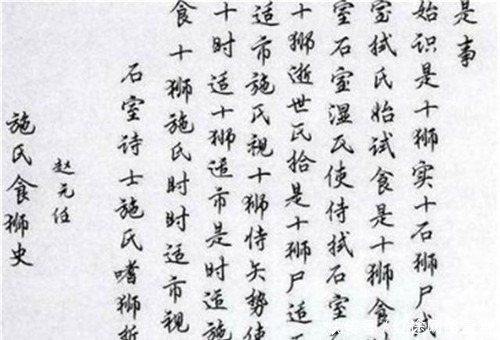 施氏食狮史
赵元任
石室诗士施氏嗜狮
食十狮施氏时时适市视
十时适十狮适市是时适施
适市施氏视十狮恃矢势使
十狮逝世氏拾是十狮尸适
室石室湿氏使侍拭石室
室拭氏始试食是十狮食时
始识是十狮实十石狮尸试
是事